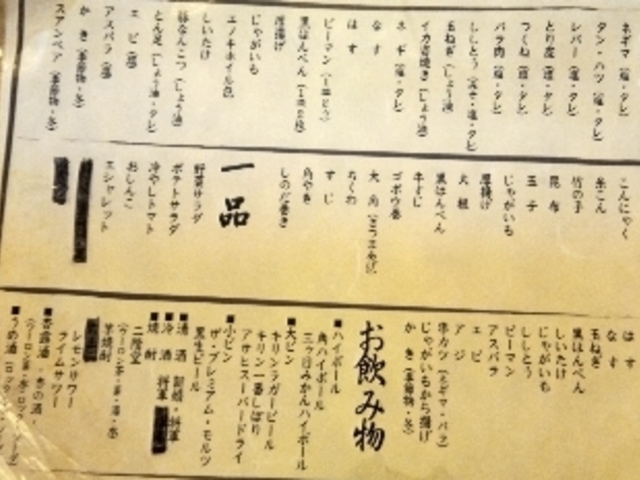 ネギマ（塩・タレ）
タン・ハツ（塩・タレ）
レバー（塩・タレ）
とり皮（塩・タレ）
つくね（塩・タレ）
バラ肉（塩・タレ）
ししとう（塩・タレ）
玉ねぎ（しょう油）
イカ姿焼き（しょう油）
ネギ（塩・タレ）
なす
はす
ピーマン（1皿2ヶ）
黒はんぺん（1皿2枚）
厚揚げ
じゃがいも
エノキホイル包
しいたけ
豚なんこつ（しょう油）
とん足（しょう油・タレ）
エビ（塩）
アスパラ（塩）
かき（季節物・冬）
スアンペア（季節物・冬）
こんにゃく
糸こん
竹の子
昆布
玉子
じゃがいも
厚揚げ
大根
黒はんぺん
牛すじ
ゴボウ巻
大角（さつまあげ）
ちくわ
すじ
角やき
しのだ巻き
一品
野菜サラダ
ポテトサラダ
冷やしトマト
おしんこ
エシャレット
はす
なす
玉ねぎ
黒はんぺん
しいたけ
じゃがいも
ししとう
ピーマン
アスパラ
エビ
アジ
串カツ（ネギマ・バラ）
じゃがいもから揚げ
かき（季節物・冬）
お飲み物
■ハイボール
角ハイボール
三ヶ日みかんハイボール
■大ビン
キリンラガービール
キリン一番しぼり
アサヒスーパードライ
■小ビン
ザ・プレミアム・モルツ
黒生ビール
■清酒
■冷酒
■焼酎
二階堂
（ウーロン茶・茶・湯・水）
芋焼酎
レモンサワー
ライムサワー
■杏露酒・杏の酒・
■うめ酒